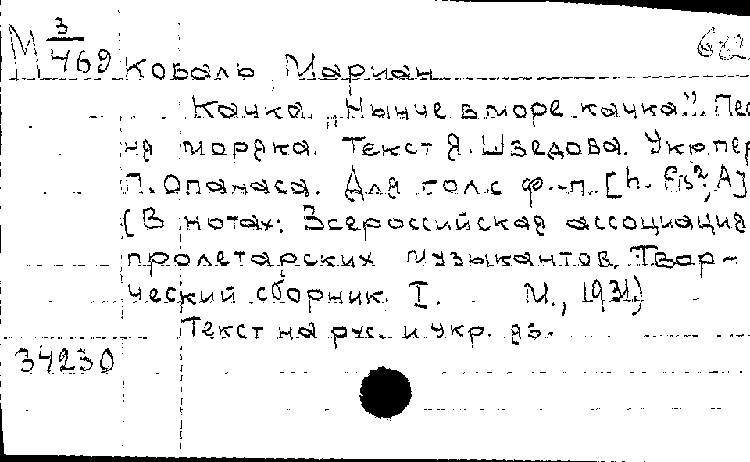 М 3/469
Коваль Мариан
Качка. „Нынче в море качка". Пес
ня моряка. Текст Я. Шведова. Укр. пер
П. Опанаса. Для гол. с ф.-п. [h. fis²; A]
(В нотах: Всероссийская ассоциация
пролетарских музыкантов. Твор-
ческий сборник I. М., 1931.)
Текст на рус. и укр. яз.
34230